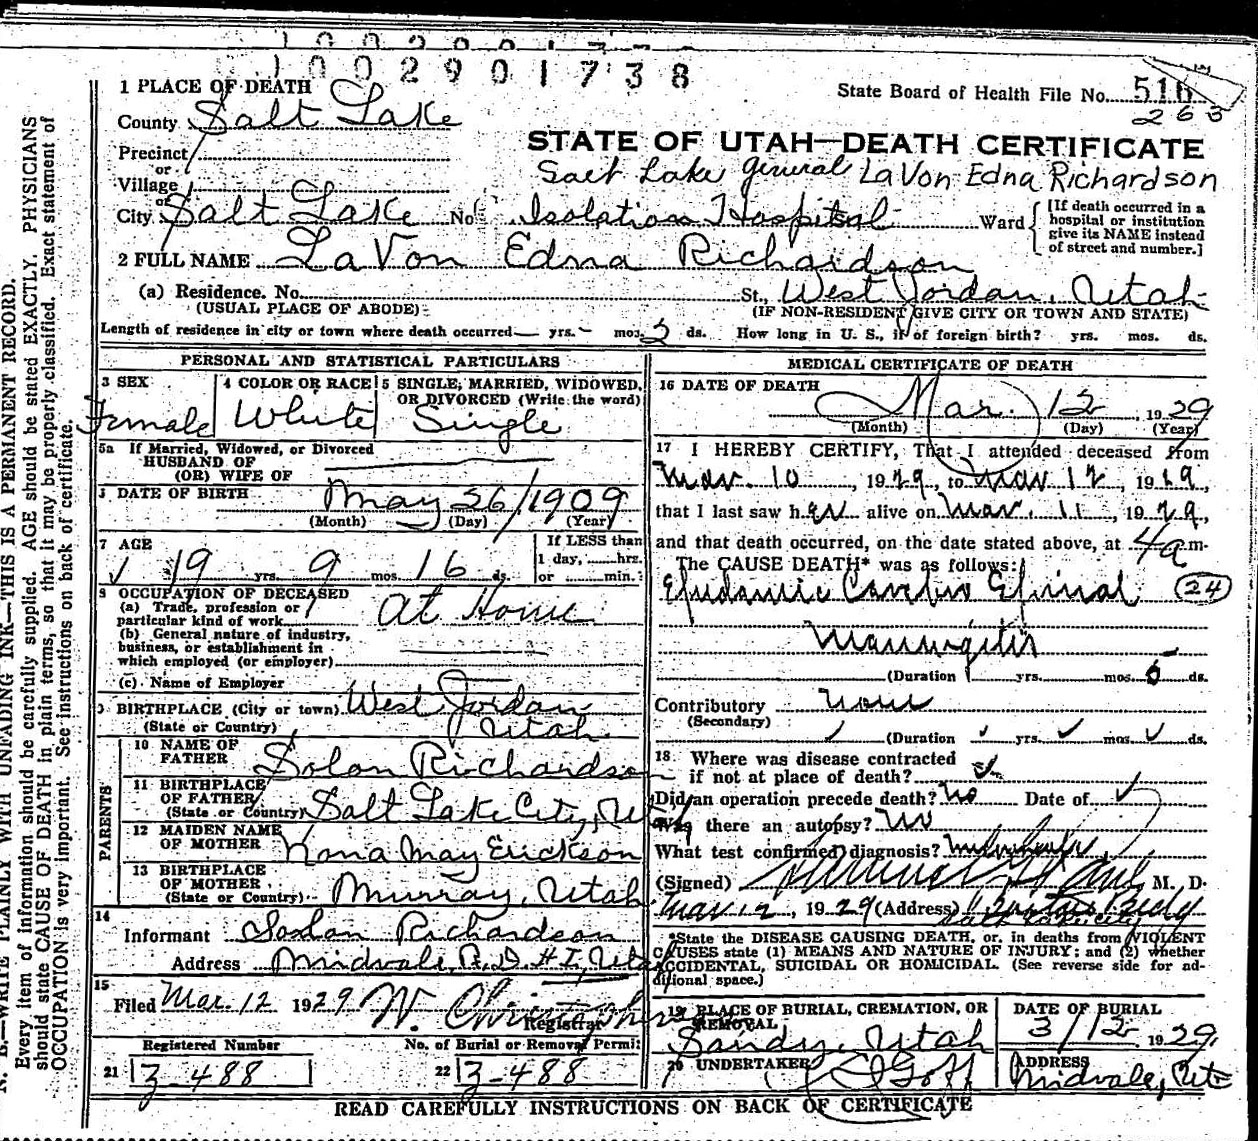 1002901738
1 PLACE OF DEATH
State Board of Health File No. 516
263
County Salt Lake
STATE OF UTAH—DEATH CERTIFICATE
Precinct
or
Village
Salt Lake General LaVon Edna Richardson
or
City Salt Lake No. Isolation Hospital Ward
[If death occurred in a hospital or institution give its NAME instead of street and number.]
2 FULL NAME LaVon Edna Richardson
(a) Residence. No. St., West Jordan, Utah
(USUAL PLACE OF ABODE) (IF NON-RESIDENT GIVE CITY OR TOWN AND STATE)
Length of residence in city or town where death occurred — yrs. - mos. 5 ds. How long in U. S., if of foreign birth? yrs. mos. ds.
PERSONAL AND STATISTICAL PARTICULARS
3 SEX 4 COLOR OR RACE 5 SINGLE, MARRIED, WIDOWED, OR DIVORCED (Write the word)
Female White Single
5a If Married, Widowed, or Divorced
HUSBAND OF
(OR) WIFE OF
DATE OF BIRTH May 26/1909
(Month) (Day) (Year)
7 AGE If LESS than
1 day, hrs.
19 yrs. 9 mos. 16 ds. or min.
8 OCCUPATION OF DECEASED
(a) Trade, profession or
particular kind of work At Home
(b) General nature of industry,
business, or establishment in
which employed (or employer)
(c) Name of Employer
9 BIRTHPLACE (City or town) West Jordan
(State or Country) Utah.
PARENTS
10 NAME OF
FATHER Solon Richardson
11 BIRTHPLACE
OF FATHER
(State or Country) Salt Lake City, Utah
12 MAIDEN NAME
OF MOTHER Nona May Erickson
13 BIRTHPLACE
OF MOTHER
(State or Country) Murray, Utah
14
Informant Soslan Richardson
Address Midvale, R.D. #1, Utah
15
Filed Mar. 12 1929 W. Christopherson
Registrar
Registered Number No. of Burial or Removal Permit
21 3-488 22 3-488
MEDICAL CERTIFICATE OF DEATH
16 DATE OF DEATH
Mar. 12, 1929
(Month) (Day) (Year)
17 I HEREBY CERTIFY, That I attended deceased from
Mar. 10, 1929, to Mar 12, 1929,
that I last saw her alive on Mar. 11, 1929,
and that death occurred, on the date stated above, at 4 a m.
The CAUSE DEATH* was as follows:
Epidemic Cerebro Spinal (24)
Meningitis
(Duration yrs. mos. 5 ds.
Contributory None
(Secondary)
(Duration yrs. mos. ds.
18. Where was disease contracted
if not at place of death?
Did an operation precede death? No Date of
Was there an autopsy? No
What test confirmed diagnosis?
(Signed) M. D.
Mar 12, 1929 (Address)
*State the DISEASE CAUSING DEATH, or, in deaths from VIOLENT
CAUSES state (1) MEANS AND NATURE OF INJURY; and (2) whether
ACCIDENTAL, SUICIDAL OR HOMICIDAL. (See reverse side for ad-
ditional space.)
19 PLACE OF BURIAL, CREMATION, OR REMOVAL DATE OF BURIAL
Sandy, Utah 3/12 1929
20 UNDERTAKER Goff ADDRESS
Midvale, Ut
READ CAREFULLY INSTRUCTIONS ON BACK OF CERTIFICATE
N. B.—WRITE PLAINLY WITH UNFADING INK—THIS IS A PERMANENT RECORD.
Every item of information should be carefully supplied. AGE should be stated EXACTLY. PHYSICIANS
should state CAUSE OF DEATH in plain terms, so that it may be properly classified. Exact statement of
OCCUPATION is very important. See instructions on back of certificate.